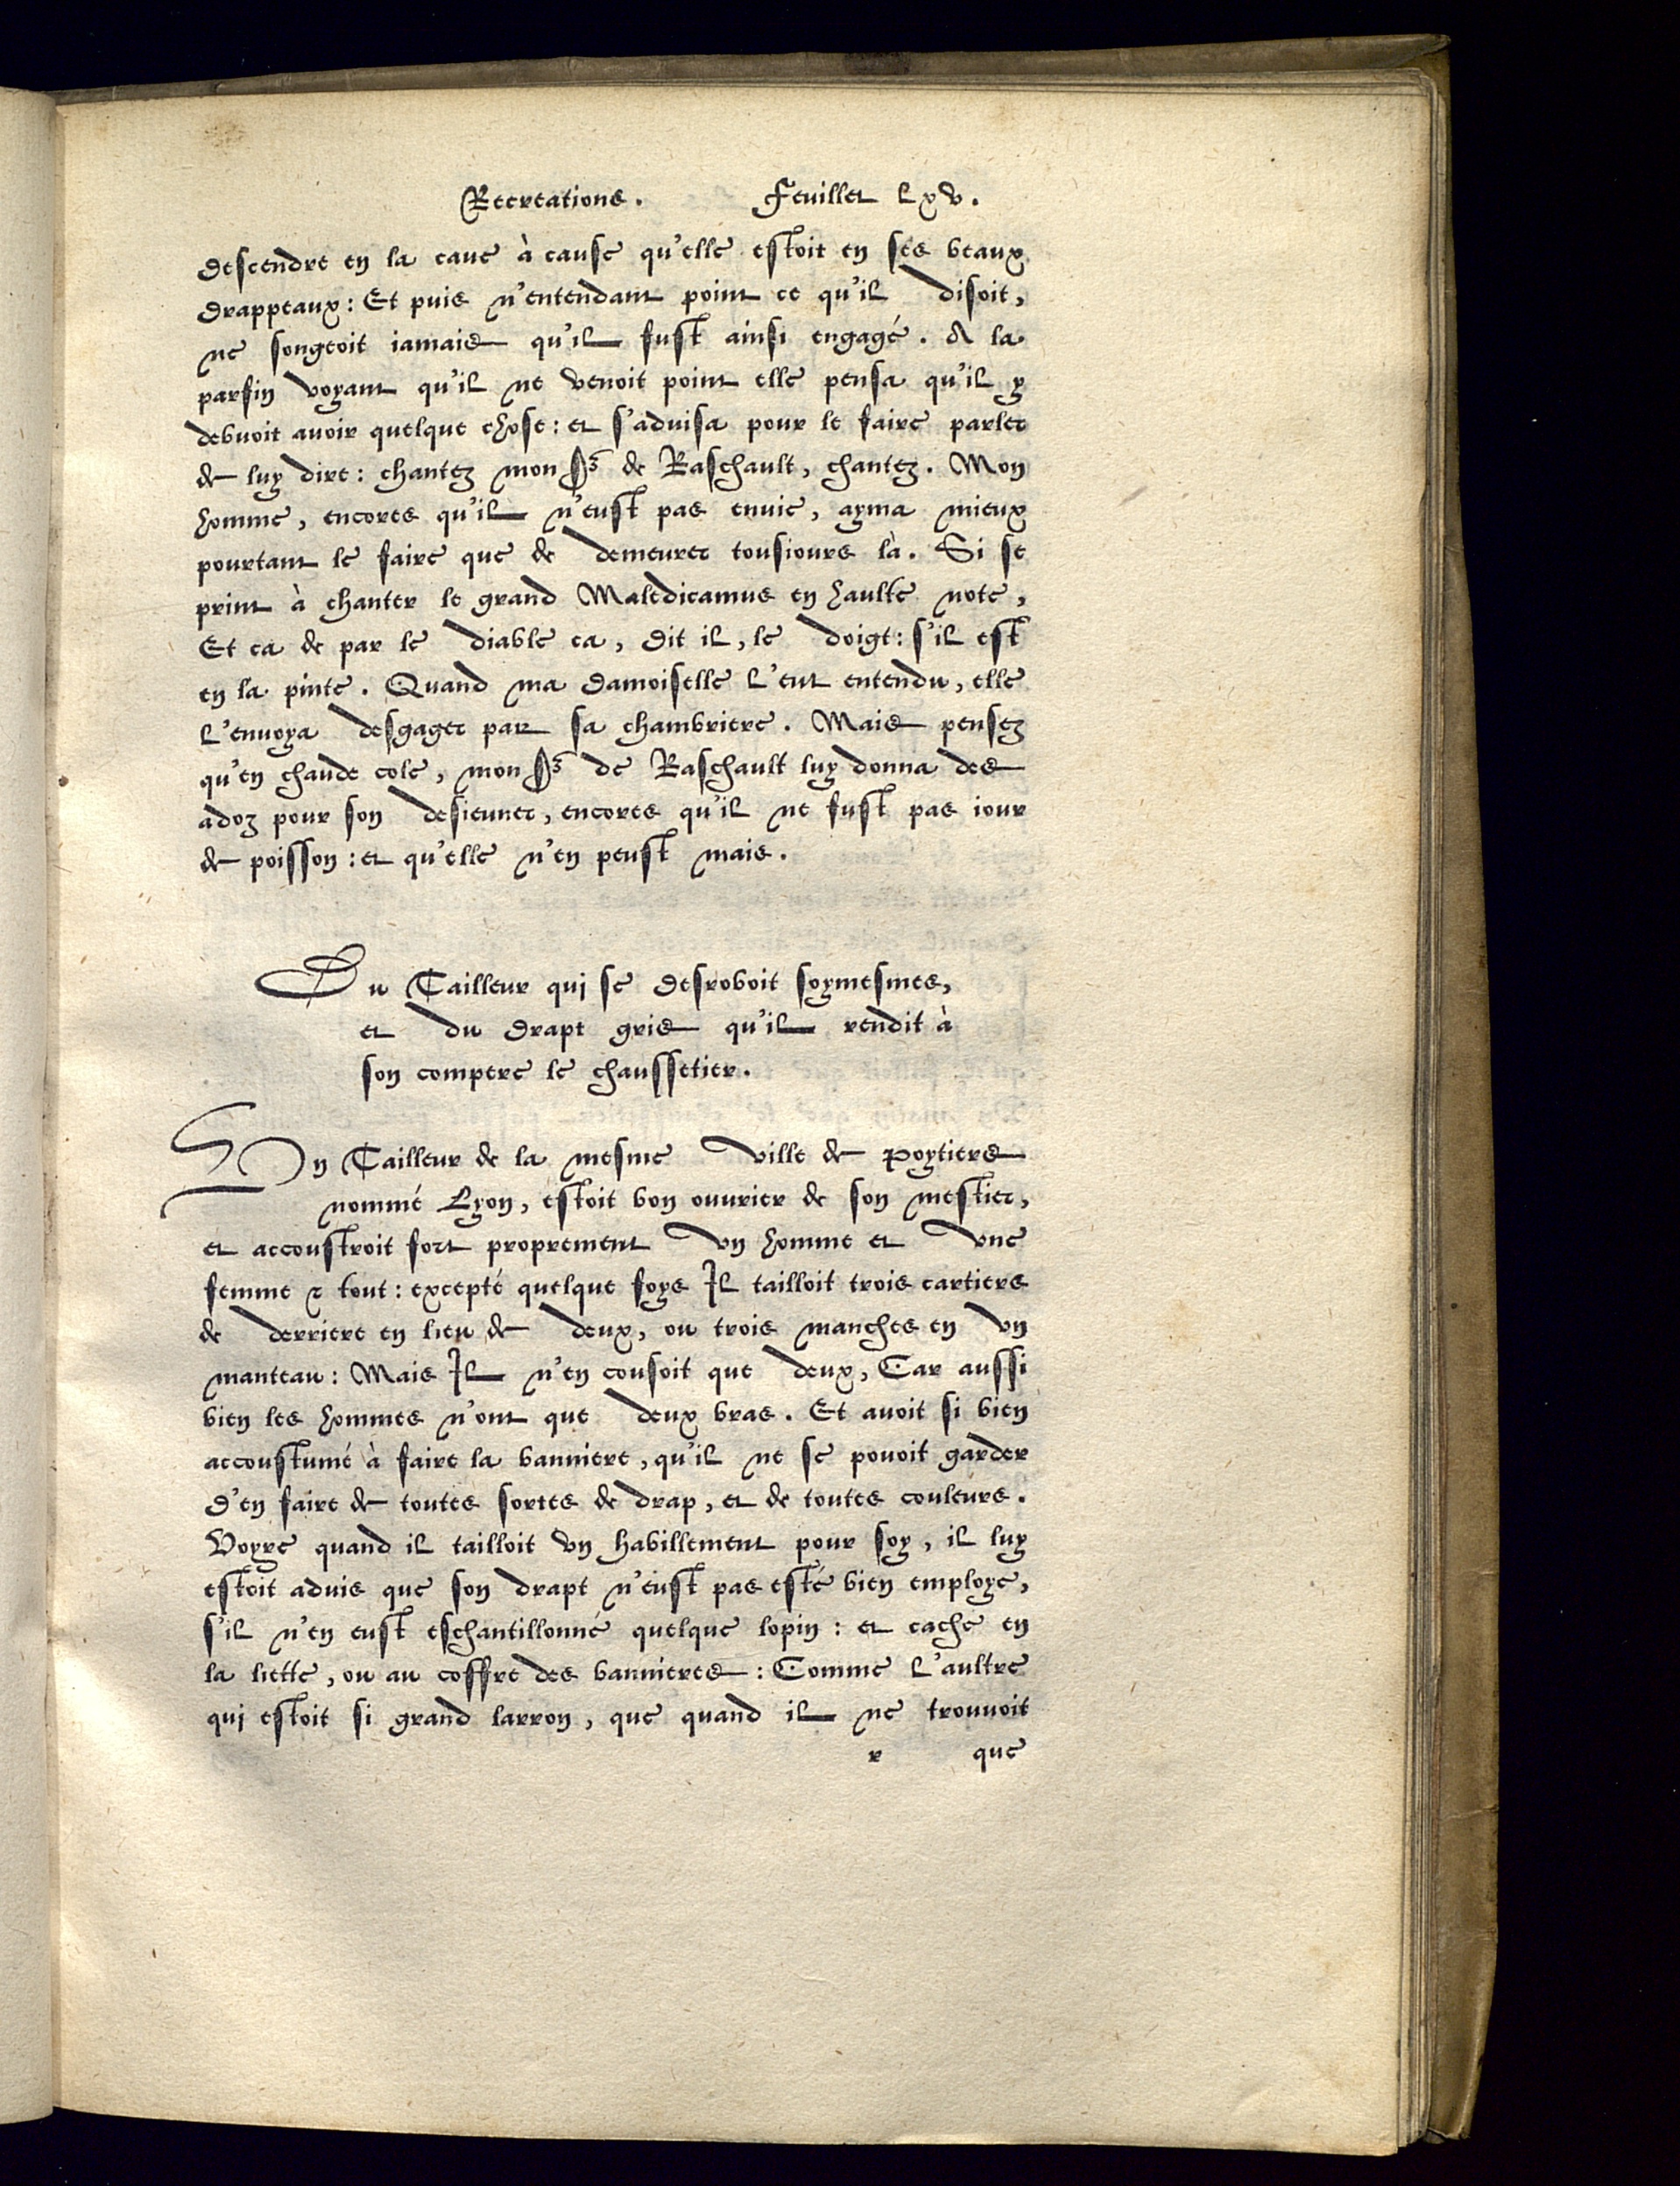 Recreations. Feuillet Lxv.
descendre en la caue à cause qu'elle estoit en ses beaux
drappeaux: Et puis n'entendant point ce qu'il disoit,
ne songeoit iamais qu'il fust ainsi engagé. A la
parfin voyant qu'il ne venoit point elle pensa qu'il y
debuoit auoir quelque chose: et s'aduisa pour le faire parler
de luy dire: chantez mon Sʳ de Raschault, chantez. Mon
homme, encores qu'il n'eust pas enuie, ayma mieux
pourtant le faire que de demeurer tousiours là. Si se
print à chanter le grand Maledicamus en haulte note,
Et ca de par le diable ca, dit il, le doigt: s'il est
en la pinte. Quand ma damoiselle l'eut entendu, elle
l'enuoya desgager par sa chambriere. Mais pensez
qu'en chaude cole, mon Sʳ de Raschault luy donna des
adoz pour son desieuner, encores qu'il ne fust pas iour
de poisson: et qu'elle n'en peust mais.
Du Tailleur qui se desroboit soymesmes,
et du drapt gris qu'il rendit à
son compere le chaussetier.
Un Tailleur de la mesme ville de Poytiers
nommé Lyon, estoit bon ouurier de son mestier,
et accoustroit fort proprement vn homme et vne
femme & tout: excepté quelque foys Il tailloit trois cartiers
de derriere en lieu de deux, ou trois manches en vn
manteau: Mais Il n'en cousoit que deux, Car aussi
bien les hommes n'ont que deux bras. Et auoit si bien
accoustumé à faire la banniere, qu'il ne se pouoit garder
d'en faire de toutes sortes de drap, et de toutes couleurs.
Voyre quand il tailloit vn habillement pour soy, il luy
estoit aduis que son drapt n'eust pas esté bien employe,
s'il n'en eust eschantillonné quelque lopin: et cache en
la liette, ou au coffre des bannieres: Comme l'aultre
qui estoit si grand larron, que quand il ne trouuoit
r que